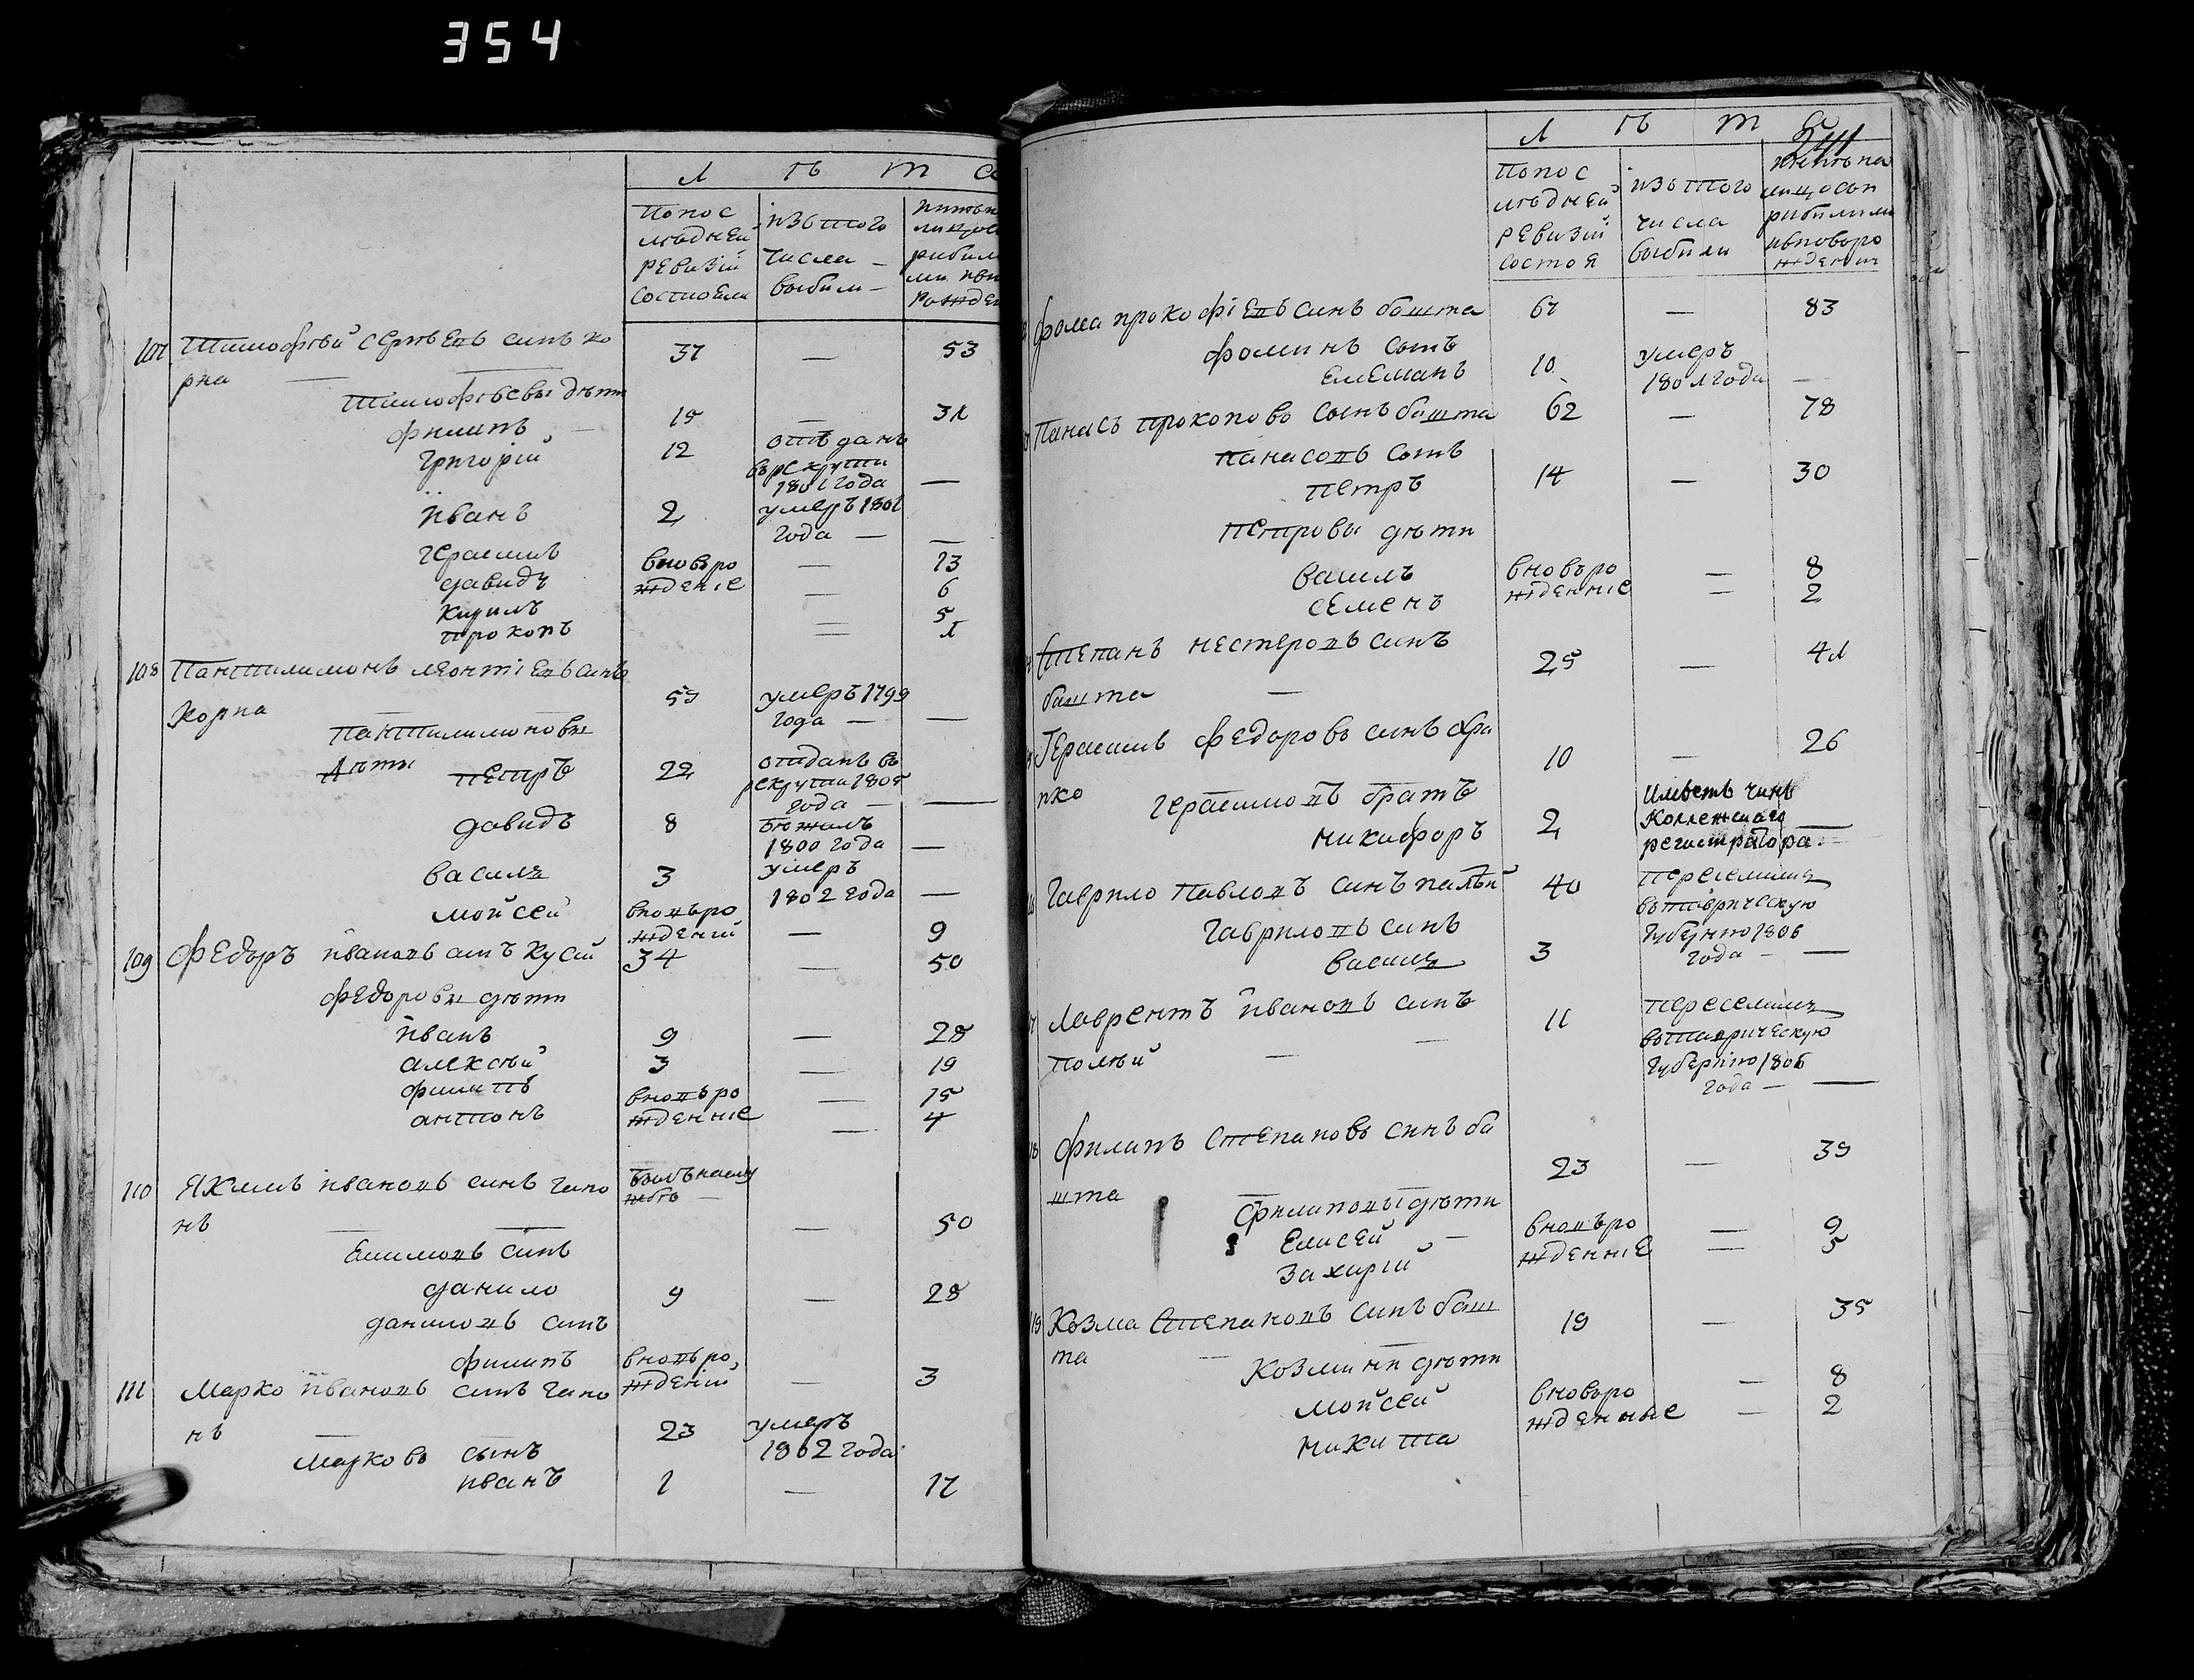 354
Л Ѣ Т А
По пос
лѣдней
ревизіи
состоели
изътого
числа
выбили
107 Тимофѣй Сергѣевъ синъ ко
рна
37 — 53
Тимофѣевы дѣти
Филипъ 15 — 31
Григорій 12 отъданъ
въ рекрути
1801 года —
Иванъ 2 умеръ 1801
года — —
Герасимъ вновъро
ждение — 13
Давидъ — 6
Кирилъ — 5
Прокопъ — 1
108 Пантилимонъ Леонтіевъ синъ
Корна 59 умеръ 1799
года — —
Пантилимоновы
дѣти Петръ 22 отданъ въ
рекрути 1805
года — —
Давидъ 8 бѣжалъ
1800 года —
Василь 3 умеръ
1802 года —
Мойсей вновъро
ждений — 9
109 Федоръ Ивановъ синъ Кусий 34 — 50
Федоровы дѣти
Иванъ 9 — 28
Алексѣй 3 — 19
Филипъ вновъро — 15
Антонъ ждение — 4
110 Якимъ Ивановъ синъ Чапо
нъ — 50
Екимовъ синъ
Данило 9 — 28
Даниловъ синъ
Филипъ вновъро
ждений — 3
111 Марко Ивановъ синъ Чапо
нъ 23 умеръ
1802 года
Марковъ сынъ
Иванъ 1 — 17
Л Ѣ Т А
241
По пос
лѣдней
ревизій
состоя
изътого
числа
выбили
Фома Прокофіевъ синъ Башта 67 — 83
Фоминъ сынъ
Емелианъ 10 умеръ
1801 года —
Панасъ Прокоповъ сынъ Башта 62 — 78
Панасовъ сынъ
Петръ 14 — 30
Петровы дѣти
Василь вновъро — 8
Семенъ ждение — 2
Степанъ Нестеровъ синъ
Башта 25 — 41
Герасимъ Федоровъ синъ Хра
пко 10 — 26
Герасимовъ братъ
Никифоръ 2 Имѣетъ чинъ
Коллежскаго
регистратора —
Гаврило Павловъ синъ Палѣй 40 переселились
въ таврическую
губернию 1806
года — —
Гавриловъ синъ
Василь 3
Лаврентъ Ивановъ синъ
Полѣй 11 переселился
въ таврическую
губернию 1806
года — —
Филипъ Степановъ синъ Ба
шта 23 — 39
Филиповы дѣти
Елисей вновъро — 9
Захарій ждение — 5
Козма Степановъ синъ Баш
та 19 — 35
Козмини дѣти
Мойсей вновъро — 8
Никита ждение — 2